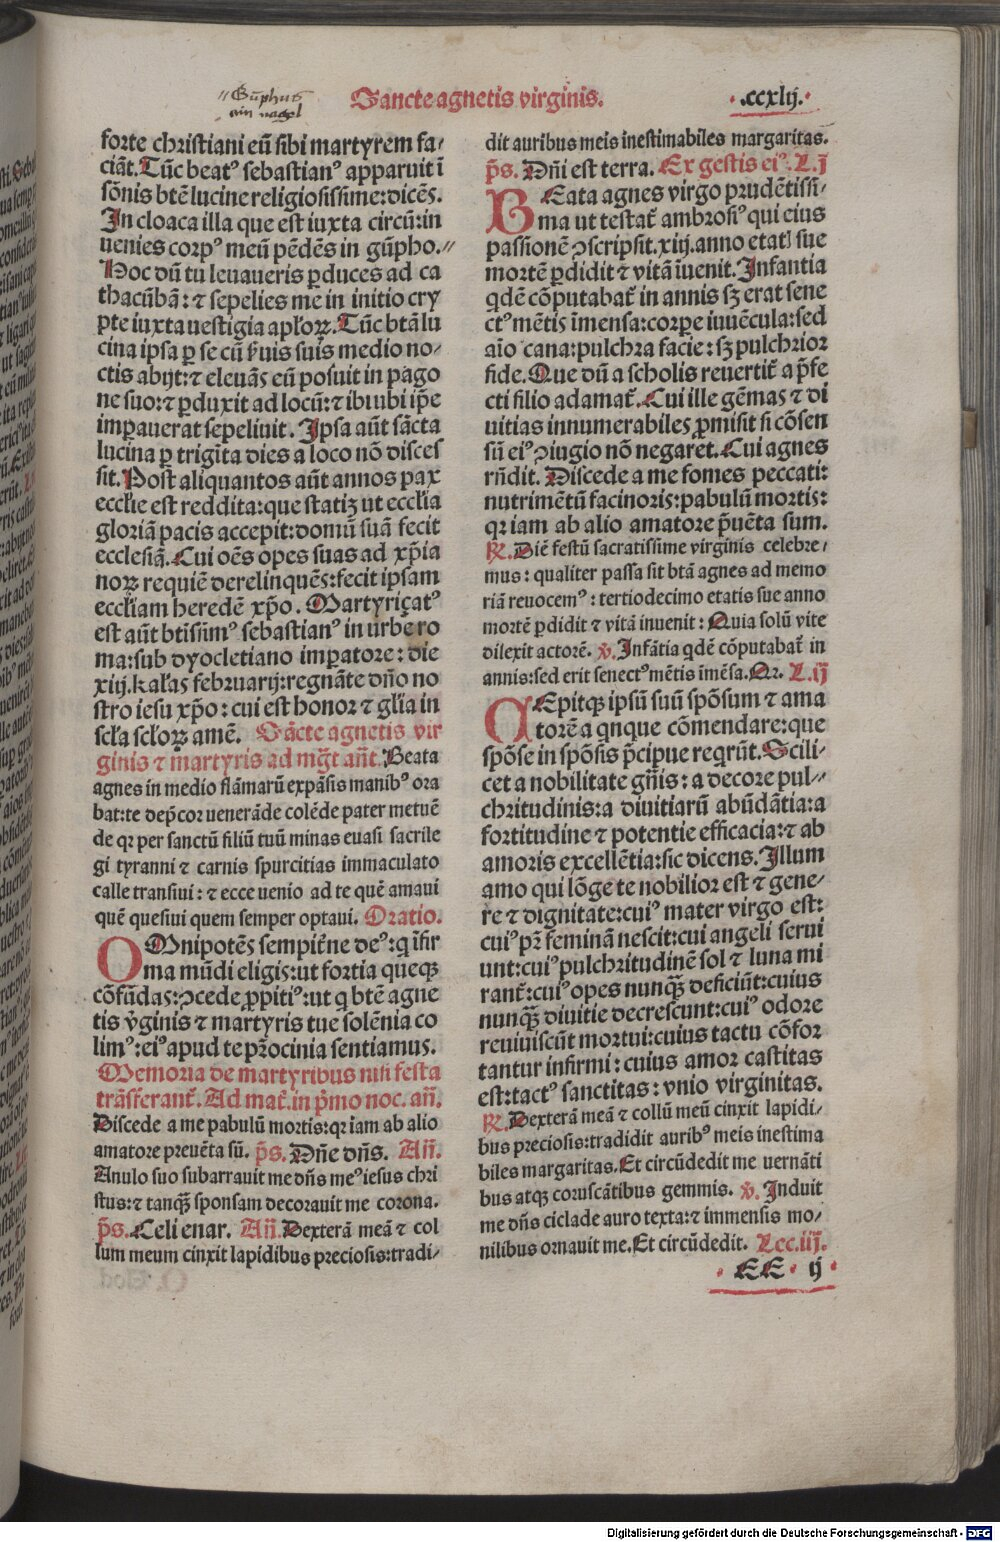 Gūphus
ein nagel
Sancte agnetis virginis.
.ccxlij.
forte christiani eū sibi martyrem fa/
ciāt. Tūc beatꝰ sebastianꝰ apparuit ī
sōnis btē lucine religiosissime: dicēs.
In cloaca illa que est iuxta circū: in
uenies corpꝰ meū pēdēs in gūpho. //
Hoc dū tu leuaueris ꝑduces ad ca
thacūbā: ⁊ sepelies me in initio cry
pte iuxta uestigia apl'oꝝ. Tūc btā lu
cina ipsa ꝑ se cū ẜuis suis medio no/
ctis abijt: ⁊ eleuās eū posuit in pago
ne suo: ⁊ ꝑduxit ad locū: ⁊ ibi ubi ip̄e
imꝑauerat sepeliuit. Ipsa aūt sācta
lucina ꝑ trigīta dies a loco nō disces
sit. Post aliquantos aūt annos pax
eccl'ie est reddita: que statiꝫ ut eccl'ia
gloriā pacis accepit: domū suā fecit
ecclesiā. Cui oēs opes suas ad xp̄ia
noꝝ requiē derelinquēs: fecit ipsam
eccl'iam heredē xp̄o. Martyriçatꝰ
est aūt btīsimꝰ sebastianꝰ in urbe ro
ma: sub dyocletiano imꝑatore: die
xiij. kal'as februarij: regnāte dn̄o no
stro iesu xp̄o: cui est honor ⁊ gl'ia in
scl'a scl'oꝝ amē. Sācte agnetis vir
ginis ⁊ martyris ad mgt̄ ant̄. Beata
agnes in medio flāmarū expāsis manibꝰ ora
bat: te dep̄cor uenerāde colēde pater metuē
de qꝛ per sanctū filiū tuū minas euasi sacrile
gi tyranni ⁊ carnis spurcitias immaculato
calle transiui: ⁊ ecce uenio ad te quē amaui
quē quesiui quem semper optaui. Oratio.
OMnipotēs sempiterne deꝰ: q īfir
ma mūdi eligis: ut fortia queqꝫ
cōfūdas: ꝯcede ꝓpitiꝰ: ut q btē agne
tis v̄ginis ⁊ martyris tue solēnia co
limꝰ: eiꝰ apud te pr̄ocinia sentiamus.
Memoria de martyribus nisi festa
trāsferant̄. Ad mat̄. in p̄mo noc. an̄.
Discede a me pabulū mortis: qꝛ iam ab alio
amatore preuēta sū. p̄s. Dn̄e dn̄s. An̄.
Anulo suo subarrauit me dn̄s meꝰ iesus chri
stus: ⁊ tanqꝫ sponsam decorauit me corona.
p̄s. Celi enar. An̄. Dexterā meā ⁊ col
lum meum cinxit lapidibus preciosis: tradi/
dit auribus meis inestimabiles margaritas.
p̄s. Dn̄i est terra. Ex gestis eiꝰ. L.j
BEata agnes virgo prudētissi/
ma ut testat̄ ambrosiꝰ qui eius
passionē ꝯscripsit. xiij. anno etatꝭ sue
mortē ꝑdidit ⁊ vitā īuenit. Infantia
qdē cōputabat̄ in annis sꝫ erat sene
ctꝰ mētis īmensa: corpe iuuēcula: sed
aīo cana: pulchra facie: sꝫ pulchrior
fide. Que dū a scholis reuertit̄ a p̄fe
cti filio adamat̄. Cui ille gēmas ⁊ di
uitias innumerabiles ꝓmisit si cōsen
sū eiꝰ ꝯiugio nō negaret. Cui agnes
rn̄dit. Discede a me fomes peccati:
nutrimētū facinoris: pabulū mortis:
qꝛ iam ab alio amatore p̄uēta sum.
℟. Diē festū sacratissime virginis celebre/
mus: qualiter passa sit btā agnes ad memo
riā reuocemꝰ: tertiodecimo etatis sue anno
mortē ꝑdidit ⁊ vitā inuenit: Quia solū vite
dilexit actorē. v̄. Infātia qdē cōputabat̄ in
annis: sed erit senectꝰ mētis īmēsa. Qr. L.ij
CEpitqꝫ ipsū suū spōsum ⁊ ama
torē a qnque cōmendare: que
spōse in spōsis p̄cipue reqrūt. Scili/
cet a nobilitate gn̄is: a decore pul//
chritudinis: a diuitiarū abūdātia: a
fortitudine ⁊ potentie efficacia: ⁊ ab
amoris excellētia: sic dicens. Illum
amo qui lōge te nobilior est ⁊ gene/
re ⁊ dignitate: cuiꝰ mater virgo est:
cuiꝰ pr̄ feminā nescit: cui angeli serui
unt: cuiꝰ pulchritudinē sol ⁊ luna mi
rant̄: cuiꝰ opes nunqꝫ deficiūt: cuius
nunqꝫ diuitie decrescunt: cuiꝰ odore
reuiuiscūt mortui: cuius tactu cōfor
tantur infirmi: cuius amor castitas
est: tactꝰ sanctitas: vnio virginitas.
℟. Dexterā meā ⁊ collū meū cinxit lapidi/
bus preciosis: tradidit auribꝰ meis inestima
biles margaritas. Et circūdedit me uernāti
bus atqꝫ coruscātibus gemmis. v̄. Induit
me dn̄s ciclade auro texta: ⁊ immensis mo/
nilibus ornauit me. Et circūdedit. Lec.iij.
EE ij
Digitalisierung gefördert durch die Deutsche Forschungsgemeinschaft - DFG